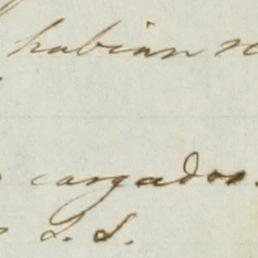 habian
cargados.
L. S.